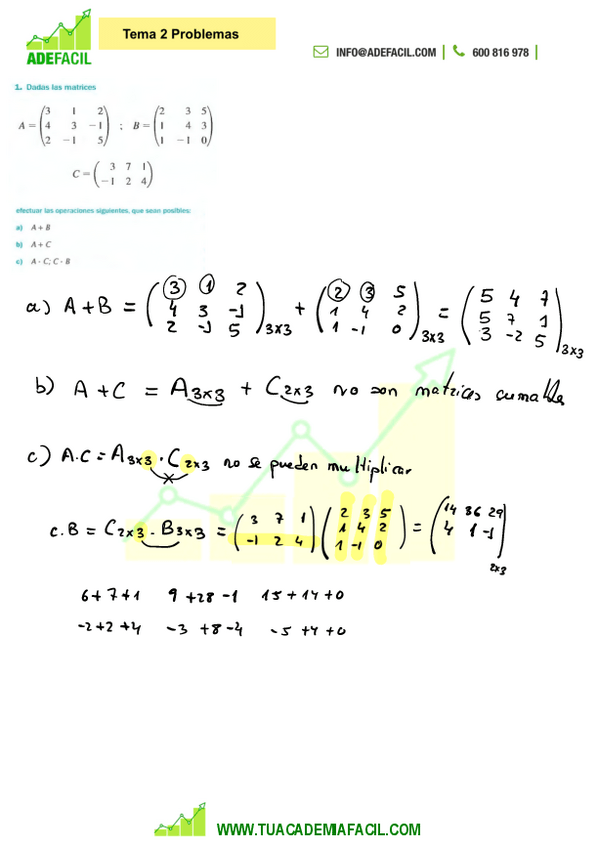 ADEFACIL
Tema 2 Problemas
INFO@ADEFACIL.COM | 600 816 978 |
1. Dadas las matrices
A = (3 1 2; 4 3 -1; 2 -1 5) ; B = (2 3 5; 1 4 3; 1 -1 0)
C = (3 7 1; -1 2 4)
efectuar las operaciones siguientes, que sean posibles:
a) A + B
b) A + C
c) A · C; C · B
a) A+B = (3 1 2; 4 3 -1; 2 -1 5)3x3 + (2 3 5; 1 4 2; 1 -1 0)3x3 = (5 4 7; 5 7 1; 3 -2 5)3x3
b) A+C = A3x3 + C2x3 no son matrices sumables
c) A.C = A3x3 · C2x3 no se pueden multiplicar
C.B = C2x3 · B3x3 = (3 7 1; -1 2 4)(2 3 5; 1 4 2; 1 -1 0) = (14 36 29; 4 1 -1)2x3
6+7+1 9+28-1 15+14+0
-2+2+4 -3+8-4 -5+4+0
WWW.TUACADEMIAFACIL.COM